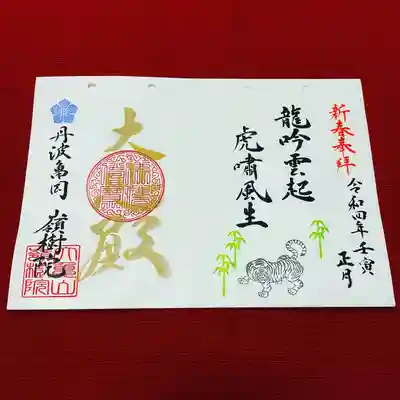 新春奉拝
令和四年壬寅
正月
龍吟雲起
虎嘯風生
大殿
丹波亀岡
嶺樹院